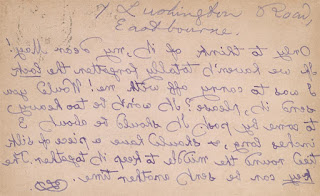 7 Lushington Road,
Eastbourne.
Only to think of it, my dear May!
If we haven't totally forgotten the book
I was to carry off with me! Would you
send it, please? It won't be too heavy
to come by post. It should be about 3
inches long & should have a piece of silk
tied round the middle to keep it together. The
key can be sent another time.